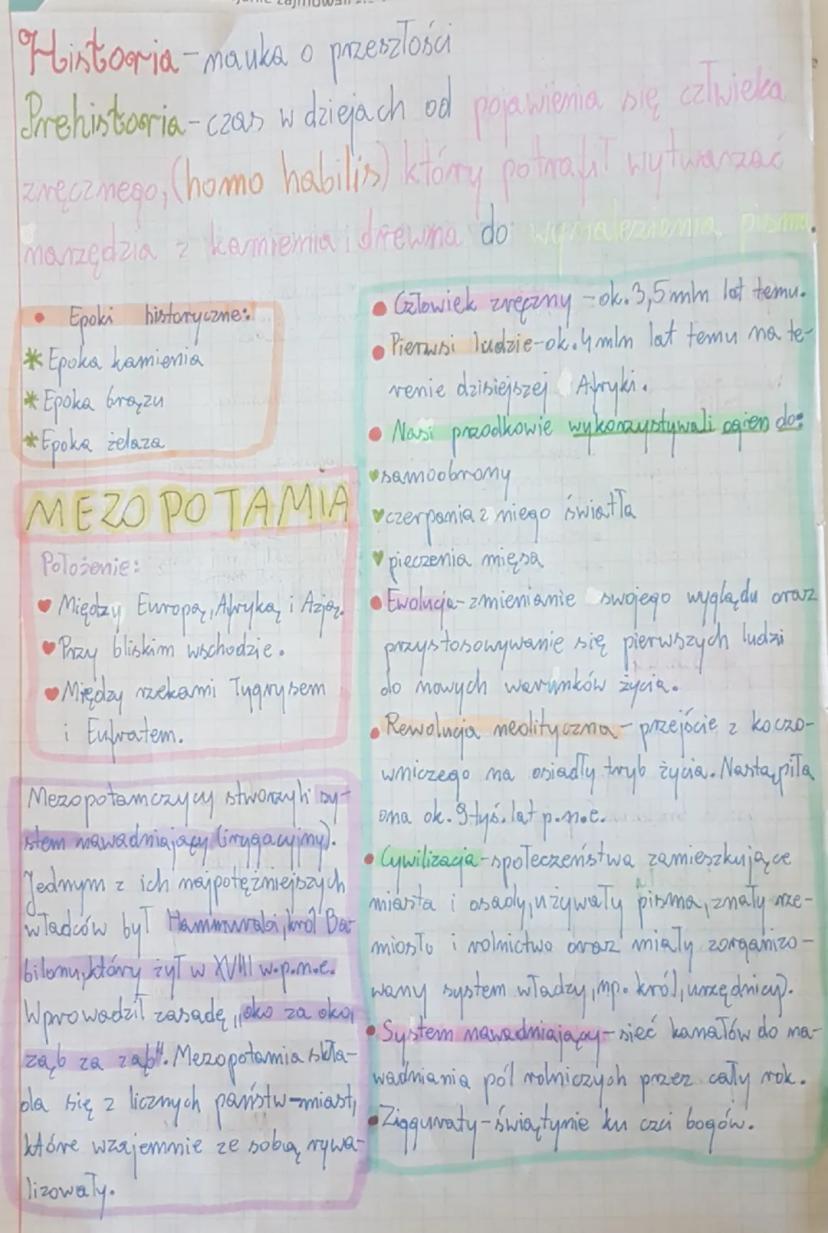 Historia - nauka o przeszłości
Prehistoria - czas w dziejach od pojawienia się człwieka
zręcznego, (homo habilis) który potrafił wytwarzać
narzędzia z kamienia i drewna do wynalezienia pisma.
• Epoki historyczne:
* Epoka kamienia
* Epoka brązu
* Epoka żelaza
MEZOPOTAMIA
Położenie:
♥ Między Europą, Afryką i Azją.
♥ Przy bliskim wschodzie.
♥ Między rzekami Tygrysem
i Eufratem.
Mezopotamczycy stworzyli sy-
stem nawadniający (irygacyjny).
Jednym z ich najpotężniejszych
władców był Hammurabi, król Ba-
bilonu, który żył w XVIII w.p.n.e.
Wprowadził zasadę „oko za oko,
ząb za ząb". Mezopotamia skła-
dla się z licznych państw-miast,
które wzajemnie ze sobą rywa-
lizowały.
• Człowiek zręczny - ok. 3,5 mln lat temu.
• Pierwsi ludzie - ok. 4 mln lat temu na te-
renie dzisiejszej Afryki.
• Nasi przodkowie wykorzystywali ogień do:
♥ samoobrony
♥ czerpania z niego światła
♥ pieczenia mięsa
• Ewolucja - zmienianie swojego wyglądu oraz
przystosowywanie się pierwszych ludzi
do nowych warunków życia.
• Rewolucja neolityczna - przejście z koczo-
wniczego na osiadły tryb życia. Nastąpiła
ona ok. 9 tyś. lat p.n.e.
• Cywilizacja - społeczeństwa zamieszkujące
miasta i osady, używały pisma, znały rze-
miosło i rolnictwo oraz miały zorganizo-
wany system władzy, (np. król, urzędnicy).
• System nawadniający - sieć kanałów do na-
wadniania pól rolniczych przez cały rok.
• Zigguraty - świątynie ku czci bogów.